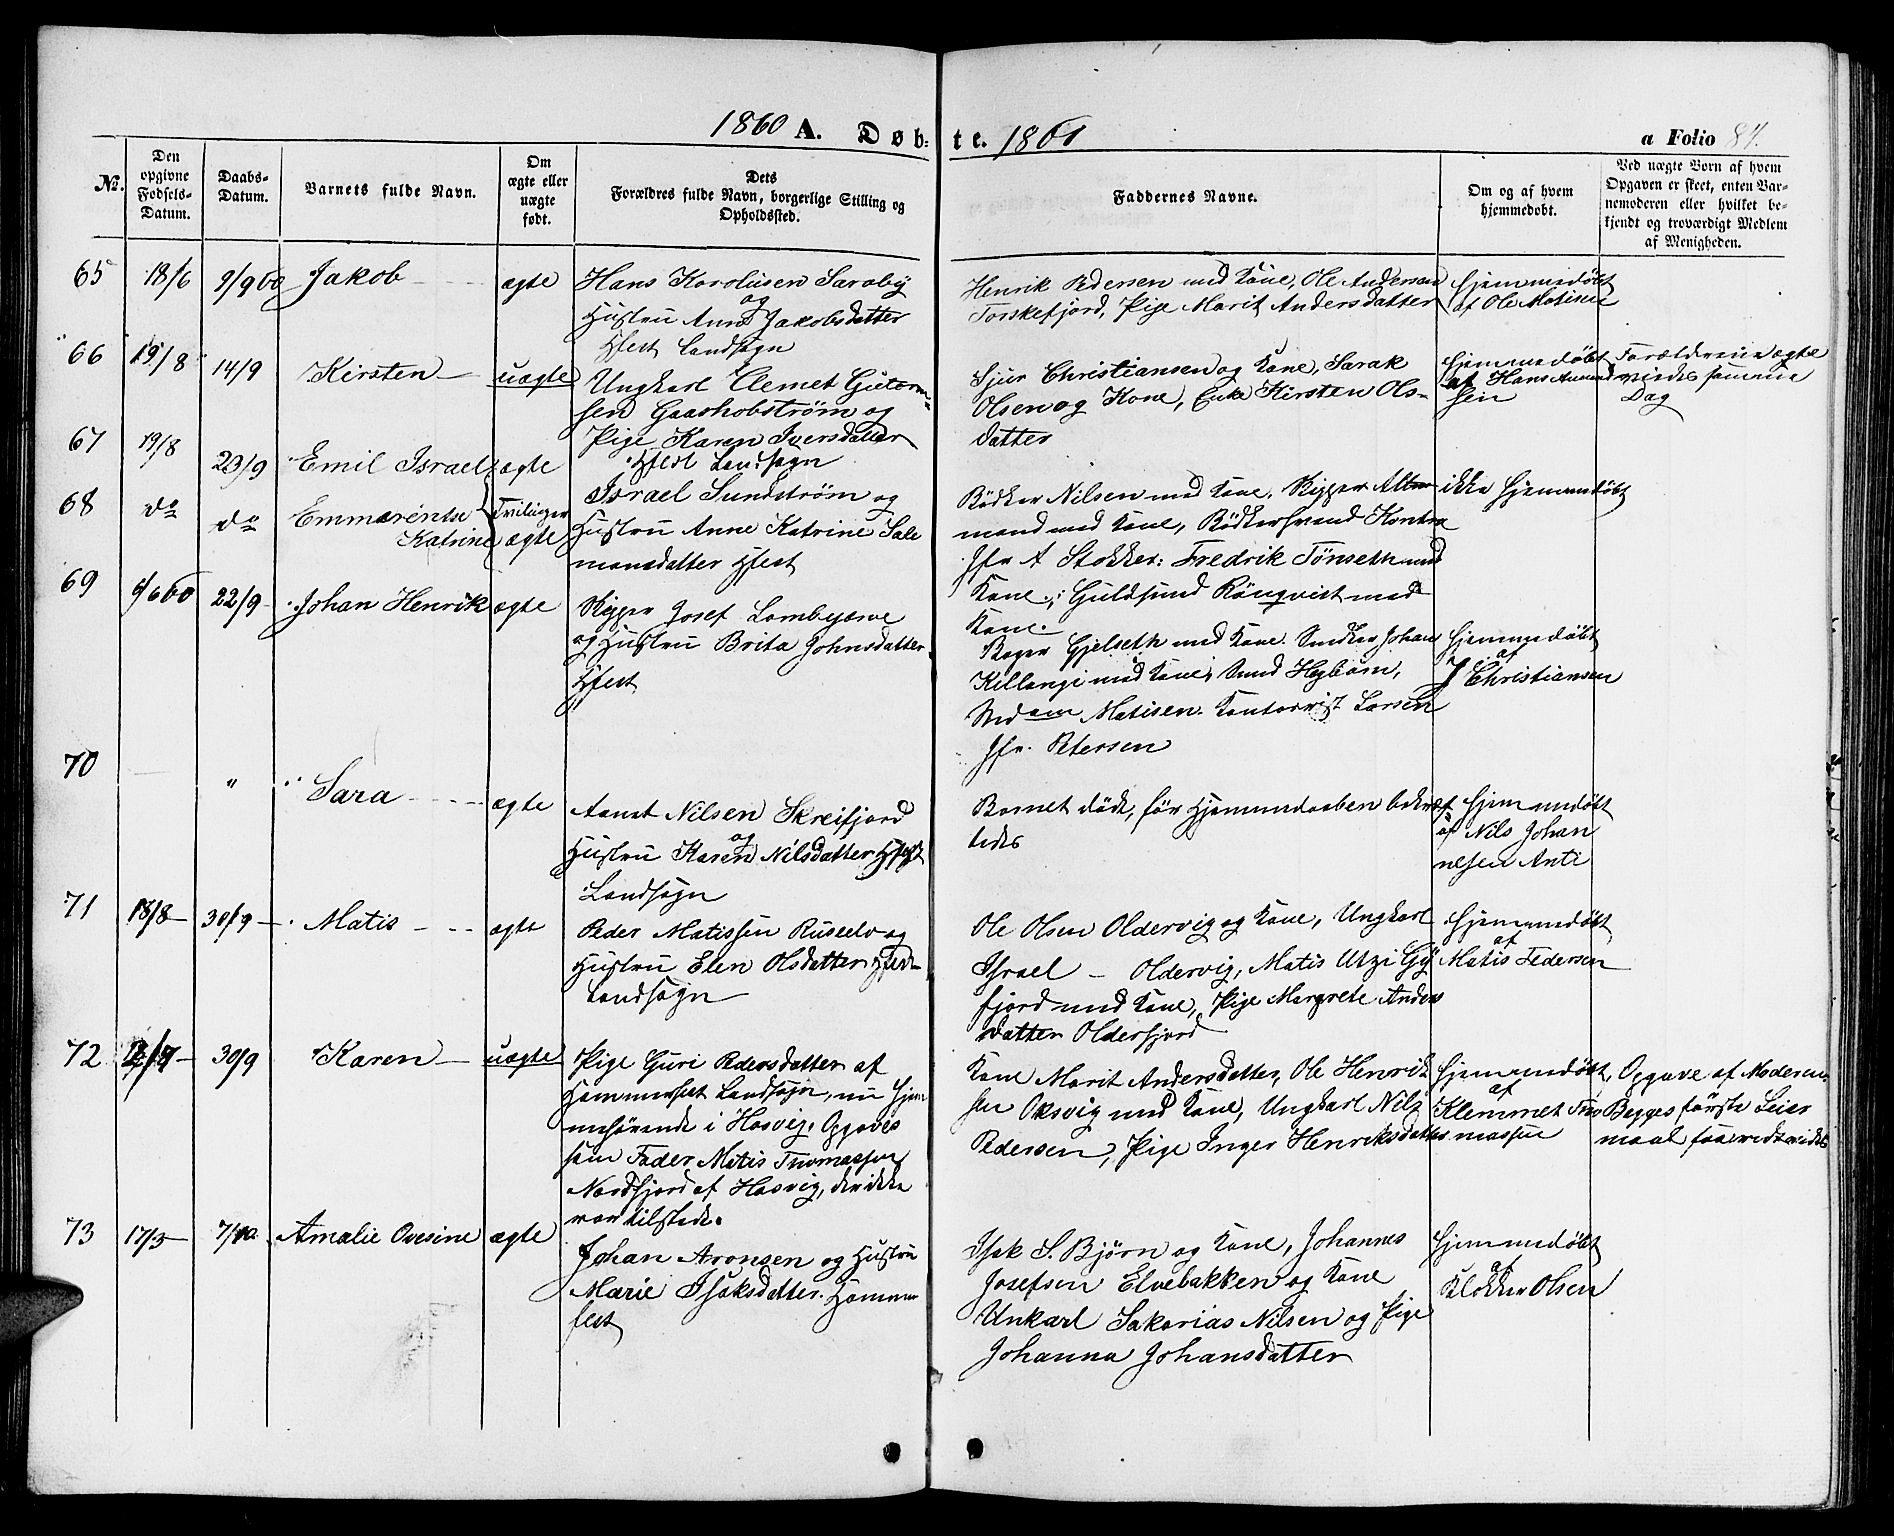 1860 A. Døbte. 1861
a Folio 87.
No.
Den opgivne Fødsels-Datum.
Daabs-Datum.
Barnets fulde Navn.
Om ægte eller uægte født.
Dets Forældres fulde Navn, borgerlige Stilling og Opholdssted.
Faddernes Navne.
Om og af hvem hjemmedøbt.
Ved uægte Børn af hvem Opgaven er skeet, enten Barnemoderen eller hvilket bekjendt og troværdigt Medlem af Menigheden.
65 18/6 9/9 60 Jakob ægte
Hans Karolusen Saraby
og
Hustru Anne Jakobsdatter
Hfest Landsogn
Henrik Pedersen med Kone, Ole Andersen
Torskefjord, Pige Marit Andersdatter
hjemmedøbt
af Ole Matisen
66 15/8 14/9 Kirsten uægte
Ungkarl Clemet Gutorm-
sen Gaashobstrøm og
Pige Karen Iversdatter
Hfest Landsogn
Sjur Christiansen og Kone, Sarak
Olsen og Kone, Enke Kirsten Ols-
datter
hjemmedøbt
af Hans
sen
Forældrene ægte
viedes samme
Dag
67 19/8 23/9 Emil Israel ægte
68 do do Emmerentse
Katrine
Tvilinger
ægte
Israel Sundstrøm og
Hustru Anne Katrine Sale
monsdatter Hfest
Bødker Nilsen med Kone. Skipper Alter
mand med Kone, Bødkersvend Kontra
Jfr A Stokker: Fredrik Tønseth med
Kone; Guldsmed Rönqvist med
Kone.
ikke hjemmedøbt
69 6/6 60 22/9 Johan Henrik ægte
Skipper Josef Lombjerve
og Hustru Brita Johnsdatter
Hfest
Bager Gjelseth med Kone. Snedker Johan
Killangi med Kone; Smed Hegbom,
Madam Matisen. Kontorist Larsen
Jfr. Petersen
hjemmedøbt
af
J Christiansen
70 " Sara ægte
Aamot Nilsen Skreifjord
og
Hustru Karen Nilsdatter Hfest
Landsogn
Barnet døde, før Hjemmedaaben bekræf
tedes
hjemmedøbt
af Nils Johan
nesen Anti
71 18/8 30/9 Matis ægte
Peder Matissen Russelv og
Hustru Elen Olsdatter Hfest
Landsogn
Ole Olsen Oldervig og Kone, Ungkarl
Israel - Oldervig, Matis Utzi Gy
fjord med Kone, Pige Margrete Anders
datter Olderfjord
hjemmedøbt
af
Matis Pedersen
72 30/9 Karen uægte
Pige Guri Pedersdatter af
Hammerfest Landsogn, nu hjem
mehørende i Hasvig. Opgaves
som Fader Matis Thomassen
Nordfjord af Hasvig, der ikke
var tilstede.
Kone Marit Andersdatter, Ole Henrik
sen Oksvig med Kone, Ungkarl Nils
Pedersen, Pige Inger Henriksdatter
hjemmedøbt
af
Klemmet Tho
massen
Opgave af Moderen.
Begges første Leier
maal saavidt vides
73 17/3 7/10 Amalie Ovesine ægte
Johan Aronsen og Hustru
Marie Isaksdatter. Hammer
fest
Isak S. Bjørn og Kone, Johannes
Josefsen Elvebakken og Kone
Unkarl Sakarias Nilsen og Pige
Johanna Johansdatter
hjemmedøbt
af
Klokker Olsen